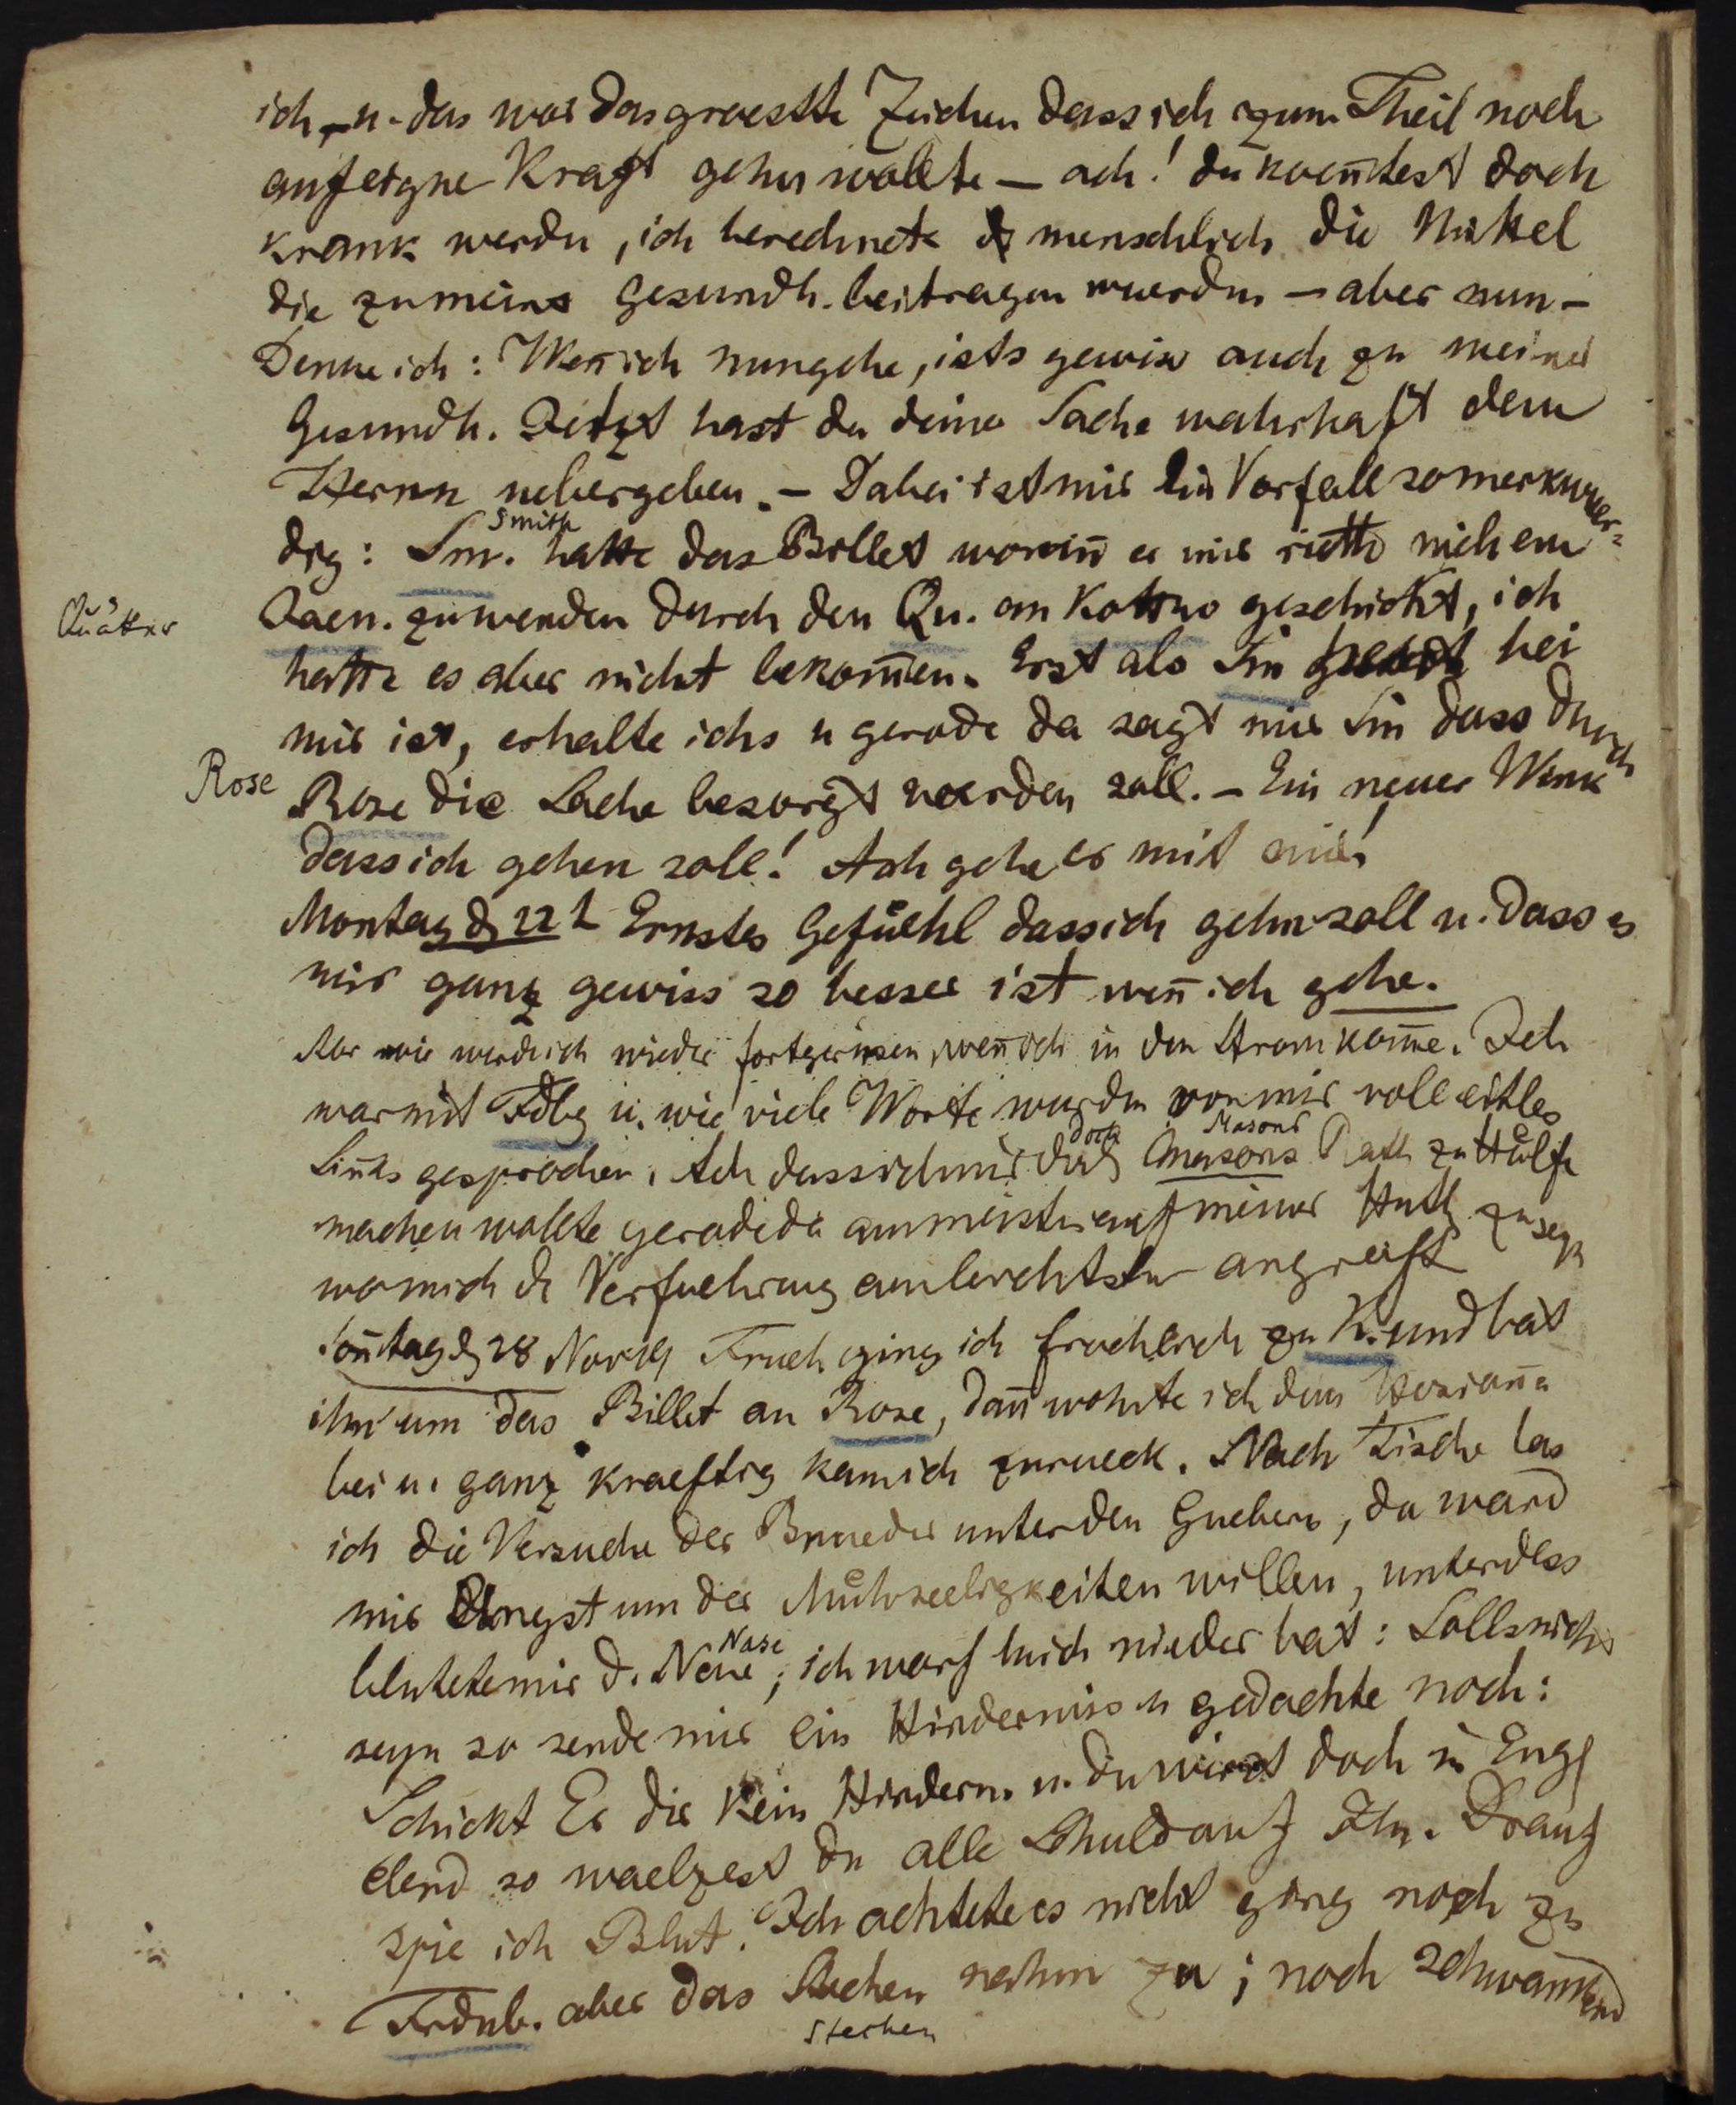 ich, u. das war das groesste Zeichen dass ich zum Theil noch
auf eigne Kraft gehn wollte — ach! du koen̄test doch
krank werden, ich berechnete menschlich die Mittel
die zu meiner Gesundh. beitragen wuerden — aber nun —
Denke ich: Wen̄ ich nun gehe, ists gewiss auch zu meiner
Gesundh. Jetzt hast du deine Sache wahrhaft dem
Herrn uebergeben. — Dabei ist mir ein Vorfall so merkwuer-
Smith
dig: Sm. hatte das Billet worin̄ er mir rieth mich an
Quäker
Jaen. zu wenden durch den Qu. an Kottw geschickt, ich
hatte es aber nicht bekom̄en. Erst als Sm bei
mir ist, erhalte ichs u gerade da sagt mir Sm dass durch
Rose
Rose die Sache besorgt werden soll. — Ein neuer Wink
dass ich gehen soll! Ach gehe er mit mir!
Montag d 22t Ernstes Gefuehl dass ich gehn soll u. dass es
mir ganz gewiss so besser ist wen̄ ich gehe.
Aber wie werde ich wieder fortgerissen, wen̄ ich in den Strom kom̄e. Ich
war mit Fdbg u. wie viele Worte wurden von mir voll eitles
doch Masons
Sin̄es gesprochen. Ach dass ich mir doch Masons Rath zu Hülfe
machen wollte gerade da am meisten auf meiner Huth zu seyn
wo mich d Verfuehrung am leichtsten angreift
Son̄tag d 28 Nov 19 Frueh ging ich froehlich zu K. und bat
ihn um das Billet an Rose, dan̄ wohnte ich dem Hosian̄a
bei u. ganz kraeftig kam ich zurueck. Nach Tische las
ich die Versuche der Brueder unter den Guebern, da ward
mir Angst um der Mühseeligkeiten willen, unterdess
Nase
blutete mir d. Nase; ich warf mich nieder bat: Solls nicht
seyn so sende mir ein Hinderniss u gedachte noch:
Schickt Er dir kein Hindern. u. du wirst doch in Engl
elend so waelzest du alle Schuld auf Ihn. Drauf
spie ich Blut. Ich achtete es nicht ging noch zu
Frdnb. aber das Stechen nahm zu; noch schwankend
Stechen